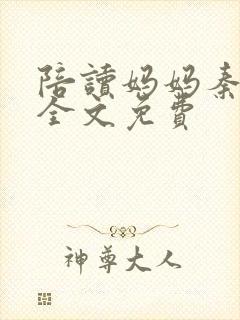 陪讀媽媽秦
全文免費
神尊大人